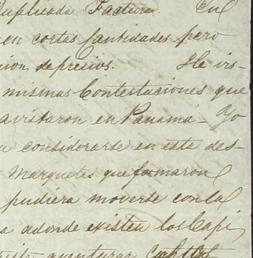 uplicada Factura. En
en cortas Cantidades pero
cion de precios. He vis-
mismas Contestaciones que
avistaron en Panamá - Yo
a considerarse en este des-
Marquetes que formaron
pudiera moverse con la
a adonde existen los Capi
aventurar